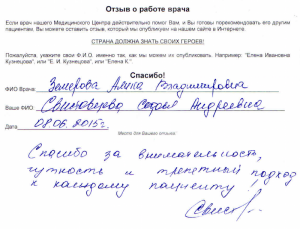 Отзыв о работе врача
Если врач нашего Медицинского Центра действительно помог Вам, и Вы готовы порекомендовать его другим
пациентам, Вы можете оставить отзыв, который мы опубликуем на нашем сайте в Интернете.
СТРАНА ДОЛЖНА ЗНАТЬ СВОИХ ГЕРОЕВ!
Пожалуйста, укажите свое Ф.И.О. именно так, как мы можем их опубликовать. Например: "Елена Ивановна
Кузнецова", или "Е. И. Кузнецова", или "Елена К.".
Спасибо!
ФИО Врача Земерова Алина Владимировна
Ваше ФИО София Андреевна
Дата 08.06.2015г.
Место для Вашего отзыва:
Спасибо за внимательность,
чуткость и трепетный подход
к каждому пациенту!